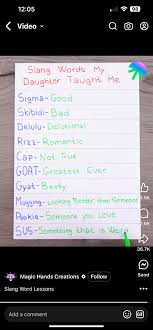 12:05
Video
Slang Words My
Daughter Taught Me
Sigma-Good
Skibidi-Bad
Delulu-Delusional
Rizz-Romantic
Cap-Not True
GOAT-Greatest Ever
Gyat-Booty
Mogging-Looking Better than Someone
Pookie-Someone you Love
SUS-Something that is Weird
36.7K
Send
Magic Hands Creations
Follow
Slang Word Lessons
Add a comment